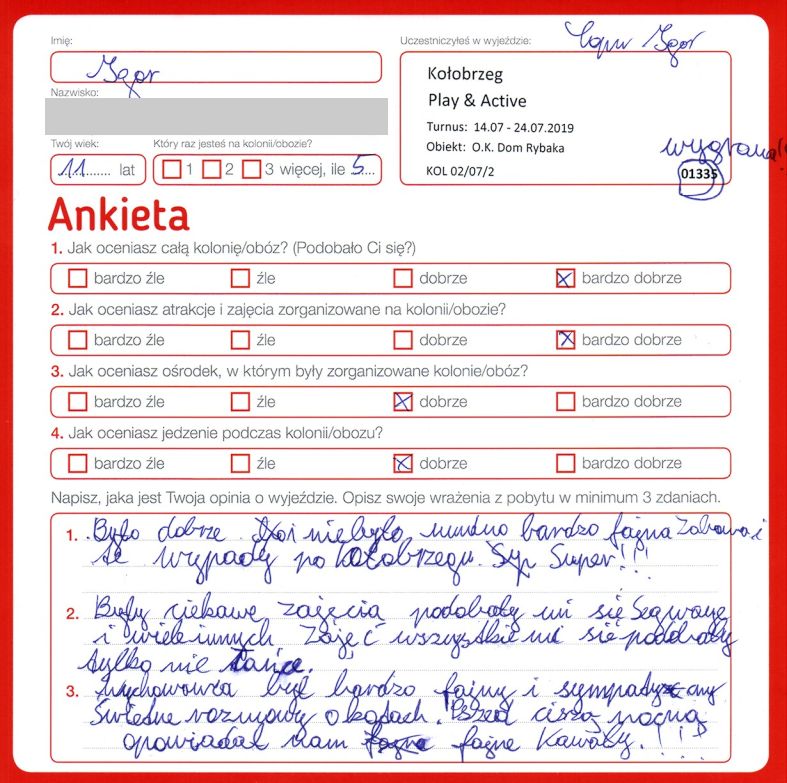 Imię:
Igor
Nazwisko:
Twój wiek:
11 ....... lat
Który raz jesteś na kolonii/obozie?
1 2 3 więcej, ile 5....
Uczestniczyłeś w wyjeździe:
Igor
Kołobrzeg
Play & Active
Turnus: 14.07 - 24.07.2019
Obiekt: O.K. Dom Rybaka
KOL 02/07/2
wygrana!
01335
Ankieta
1. Jak oceniasz całą kolonię/obóz? (Podobało Ci się?)
bardzo źle źle dobrze bardzo dobrze
2. Jak oceniasz atrakcje i zajęcia zorganizowane na kolonii/obozie?
bardzo źle źle dobrze bardzo dobrze
3. Jak oceniasz ośrodek, w którym były zorganizowane kolonie/obóz?
bardzo źle źle dobrze bardzo dobrze
4. Jak oceniasz jedzenie podczas kolonii/obozu?
bardzo źle źle dobrze bardzo dobrze
Napisz, jaka jest Twoja opinia o wyjeździe. Opisz swoje wrażenia z pobytu w minimum 3 zdaniach.
1. Było dobrze. niebyło nundno bardzo fajna Zabawa i
te wypady po kołobrzegu. Super!!!
2. Były ciekawe zajęcia podobały mi się Segwaye
i wiele innych Zajęć wszystkie mi się podobały
tylko nie tańce.
3. Wychowawca był bardzo fajny i sympatyczny
Świetne rozmowy o kotach. Przed ciszą nocną
opowiadał nam fajne Kawały.!!!